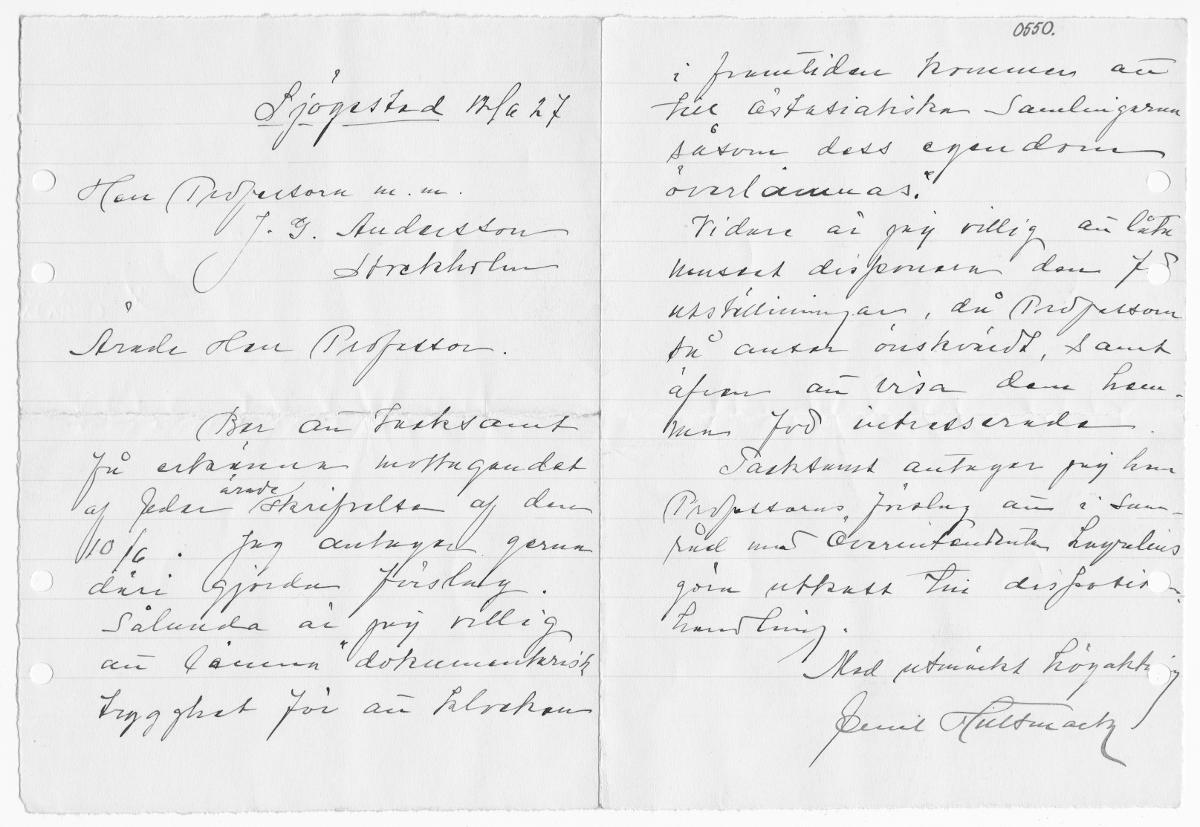 Sjögestad 12/6 27
Herr Professorn m.m.
J. G. Andersson
Stockholm
Ärade Herr Professor.
Ber att tacksamt
få erkänna mottagandet
af Eder ärade skrifvelse af den
10/6. Jag antager gerna
däri gjorda förslag.
Sålunda är jag villig
att lämna "dokumentarisk
trygghet för att klockan
0550.
i framtiden kommer att
till Östasiatiska Samlingarna
såsom dess egendom
överlämnas."
Vidare är jag villig att låta
museet disponera den för
utställningar, då Professorn
så anser önskvärdt, samt
äfven att visa dem hem-
ma för intresserade.
Tacksamt antager jag herr
Professorns förslag att i sam-
råd med Överintendenten Lagrelius
göra utkast till disposit-
handling.
Med utmärkt högaktning
Emil Hultmark